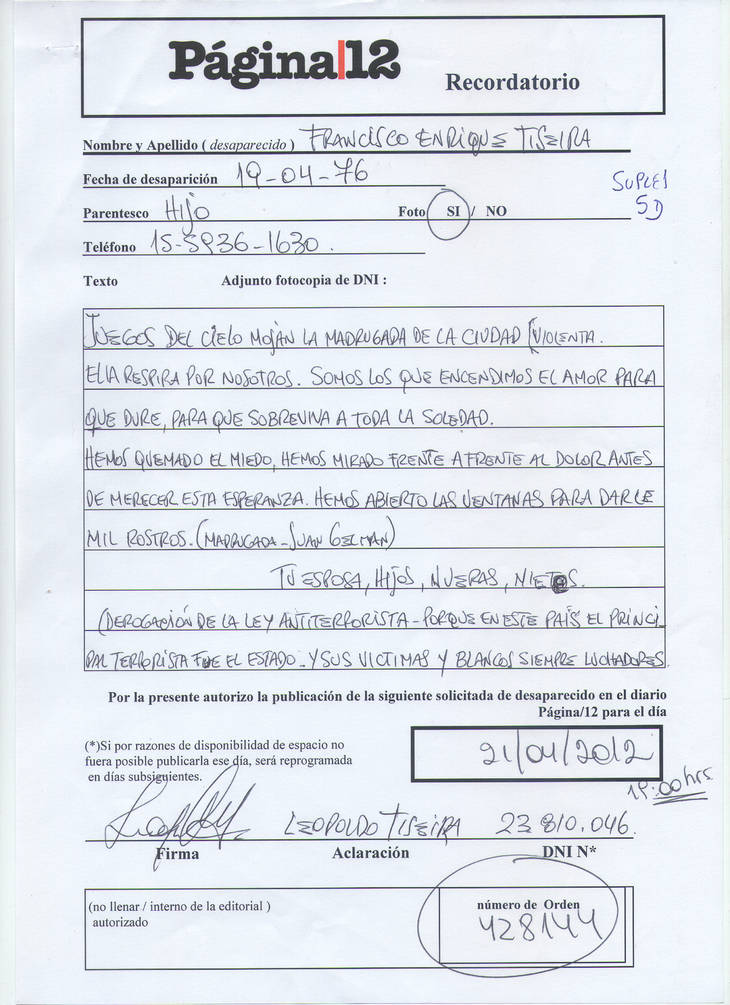 Página|12
Recordatorio
Nombre y Apellido ( desaparecido ) FRANCISCO ENRIQUE TISEIRA
Fecha de desaparición 19-04-76
SUPLE1
5D
Parentesco HIJO Foto SI / NO
Teléfono 15-5936-1630.
Texto Adjunto fotocopia de DNI :
JUEGOS DEL CIELO MOJAN LA MADRUGADA DE LA CIUDAD VIOLENTA.
ELLA RESPIRA POR NOSOTROS. SOMOS LOS QUE ENCENDIMOS EL AMOR PARA
QUE DURE, PARA QUE SOBREVIVA A TODA LA SOLEDAD.
HEMOS QUEMADO EL MIEDO, HEMOS MIRADO FRENTE A FRENTE AL DOLOR ANTES
DE MERECER ESTA ESPERANZA. HEMOS ABIERTO LAS VENTANAS PARA DARLE
MIL ROSTROS. (MADRUGADA - JUAN GELMAN)
TU ESPOSA, HIJOS, NUERAS, NIETOS.
(DEROGACIÓN DE LA LEY ANTITERRORISTA - PORQUE EN ESTE PAÍS EL PRINCI-
PAL TERRORISTA FUE EL ESTADO - Y SUS VICTIMAS Y BLANCOS SIEMPRE LUCHADORES
Por la presente autorizo la publicación de la siguiente solicitada de desaparecido en el diario
Página/12 para el día
(*)Si por razones de disponibilidad de espacio no
fuera posible publicarla ese día, será reprogramada
en días subsiguientes.
21/04/2012
19:00 hrs
LEOPOLDO TISEIRA 23 810.046.
Firma Aclaración DNI N*
(no llenar / interno de la editorial )
autorizado
número de Orden
428144